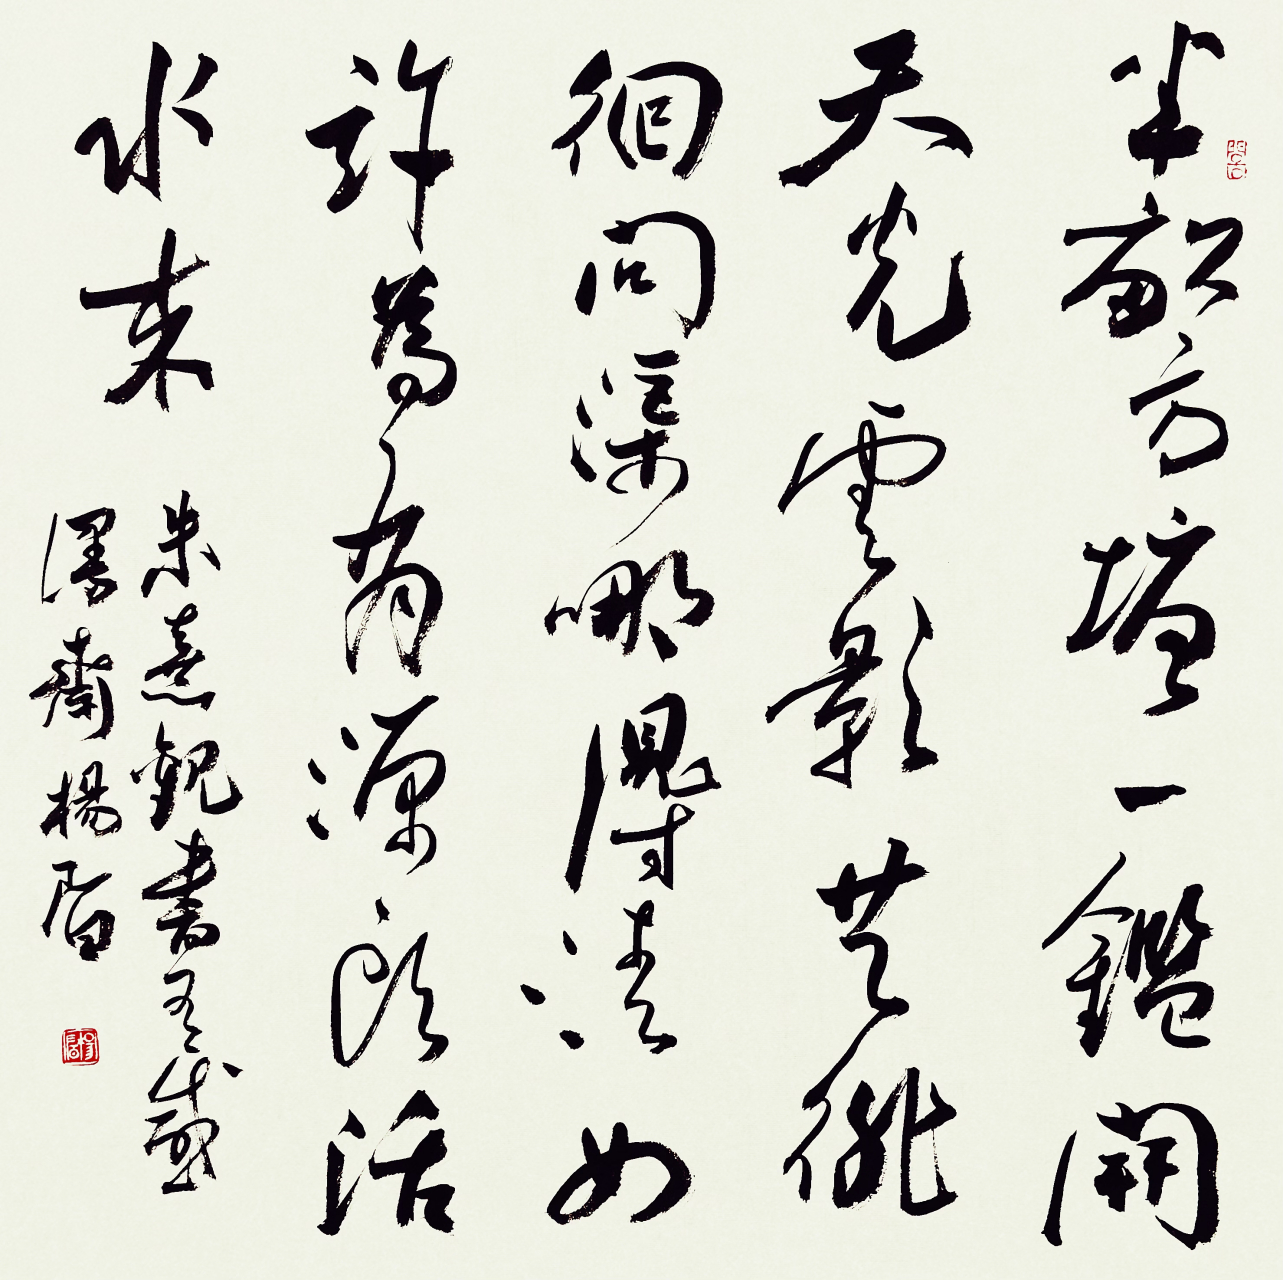 半畝方塘一鑑開
天光雲影共徘
徊問渠哪得清如
許為有源頭活
水来
朱熹觀書有感
齋楊